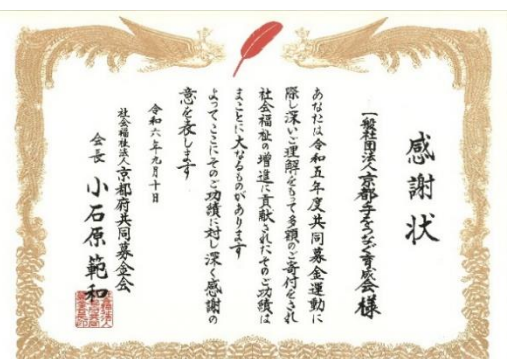 感謝状
一般社団法人京都手をつなぐ育成会様
あなたは令和五年度共同募金運動に
際し深いご理解をもって多額のご寄付をされ
社会福祉の増進に貢献されたそのご功績は
まことに大なるものがあります
よってここにそのご功績に対し深く感謝の
意を表します
令和六年九月十日
社会福祉法人京都府共同募金会
会長 小石原範和